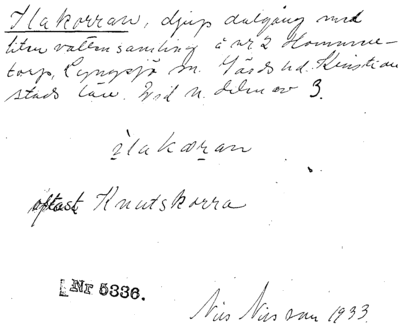 Ilakorran, djup dalgång med
liten vattensamling å nr 2 Hommen-
torp, Lyngsjö sn. Gärds hd. Kristian
stads län. Vid n. delen av 3.
ilakoran
oftast Knutskorra
Nr 5336.
Nils Nilsson 1933.